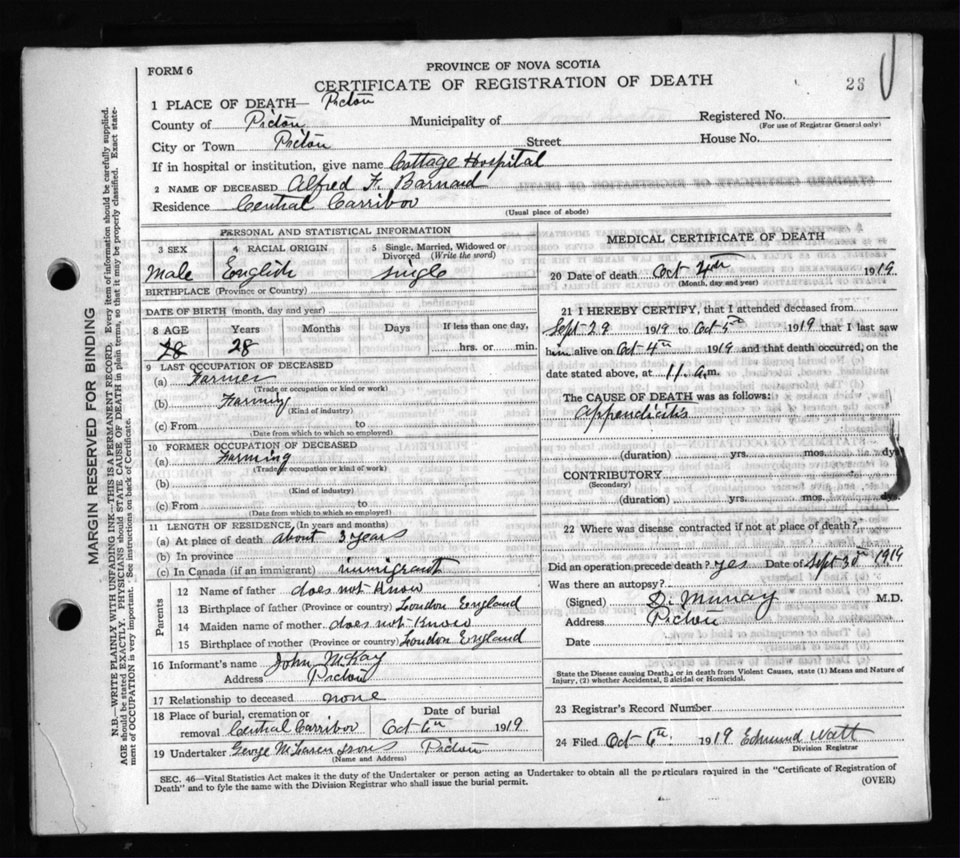 FORM 6
PROVINCE OF NOVA SCOTIA
CERTIFICATE OF REGISTRATION OF DEATH
1 PLACE OF DEATH— Pictou
County of Pictou Municipality of
City or Town Pictou Street
If in hospital or institution, give name Cottage Hospital
2 NAME OF DECEASED Alfred F. Barnard
Residence Central Carribov
(Usual place of abode)
Registered No.
(For use of Registrar General only)
House No.
PERSONAL AND STATISTICAL INFORMATION
3 SEX 4 RACIAL ORIGIN 5 Single, Married, Widowed or Divorced (Write the word)
Male English single
BIRTHPLACE (Province or Country)
DATE OF BIRTH (month, day and year)
8 AGE Years Months Days If less than one day,
28 28 hrs. or min.
9 LAST OCCUPATION OF DECEASED
(a) Farmer
(Trade or occupation or kind or work)
(b) Farming
(Kind of industry)
(c) From to
(Date from which to which so employed)
10 FORMER OCCUPATION OF DECEASED
(a) Farming
(Trade or occupation or kind of work)
(b)
(Kind of industry)
(c) From to
(Date from which to which so employed)
11 LENGTH OF RESIDENCE, (In years and months)
(a) At place of death about 3 years
(b) In province
(c) In Canada (if an immigrant) immigrant
Parents
12 Name of father does not know
13 Birthplace of father (Province or country) London England
14 Maiden name of mother does not know
15 Birthplace of mother (Province or country) London England
16 Informant's name John McKay
Address Pictou
17 Relationship to deceased none
18 Place of burial, cremation or removal Central Carribov
Date of burial
Oct 6th 1919
19 Undertaker George McLaren Sons Pictou
(Name and Address)
MEDICAL CERTIFICATE OF DEATH
20 Date of death Oct 4th 1919
(Month, day and year)
21 I HEREBY CERTIFY, that I attended deceased from
Sept 29 1919 to Oct 5th 1919 that I last saw
him alive on Oct 4th 1919 and that death occurred, on the
date stated above, at 11 a.m.
The CAUSE OF DEATH was as follows:
Appendicitis
(duration) yrs. mos. dys.
CONTRIBUTORY
(Secondary)
(duration) yrs. mos. dys.
22 Where was disease contracted if not at place of death?
Did an operation precede death? yes Date of Sept 30th 1919
Was there an autopsy?
(Signed) Murray M.D.
Address Pictou
Date
State the Disease causing Death, or in death from Violent Causes, state (1) Means and Nature of
Injury, (2) whether Accidental, Suicidal or Homicidal.
23 Registrar's Record Number
24 Filed Oct 6th. 1919 Edmund Watt
Division Registrar
SEC. 46—Vital Statistics Act makes it the duty of the Undertaker or person acting as Undertaker to obtain all the particulars required in the "Certificate of Registration of
Death" and to fyle the same with the Division Registrar who shall issue the burial permit.
(OVER)
MARGIN RESERVED FOR BINDING
N.B.—WRITE PLAINLY WITH UNFADING INK—THIS IS A PERMANENT RECORD. Every item of information should be carefully supplied.
AGE should be stated EXACTLY. PHYSICIANS should STATE CAUSE OF DEATH in plain terms, so that it may be properly classified. Exact state-
ment of OCCUPATION is very important. See instructions on back of Certificate.